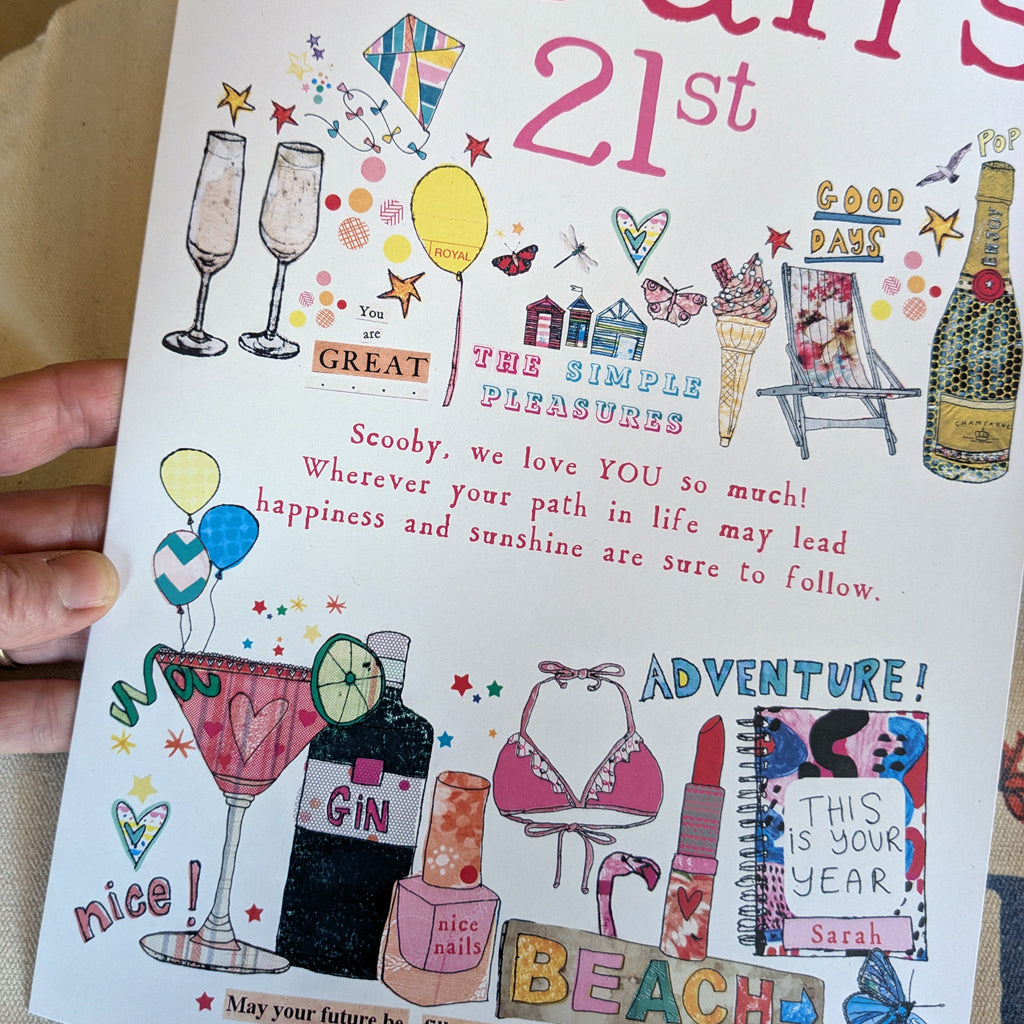 21st
POP
GOOD
DAYS
ROYAL
You
are
GREAT
THE SIMPLE
PLEASURES
CHAMPAGNE
Scooby, we love YOU so much!
Wherever your path in life may lead
happiness and sunshine are sure to follow.
ADVENTURE!
GiN
THIS
iS YOUR
YEAR
Sarah
nice!
nice
nails
BEACH
May your future be